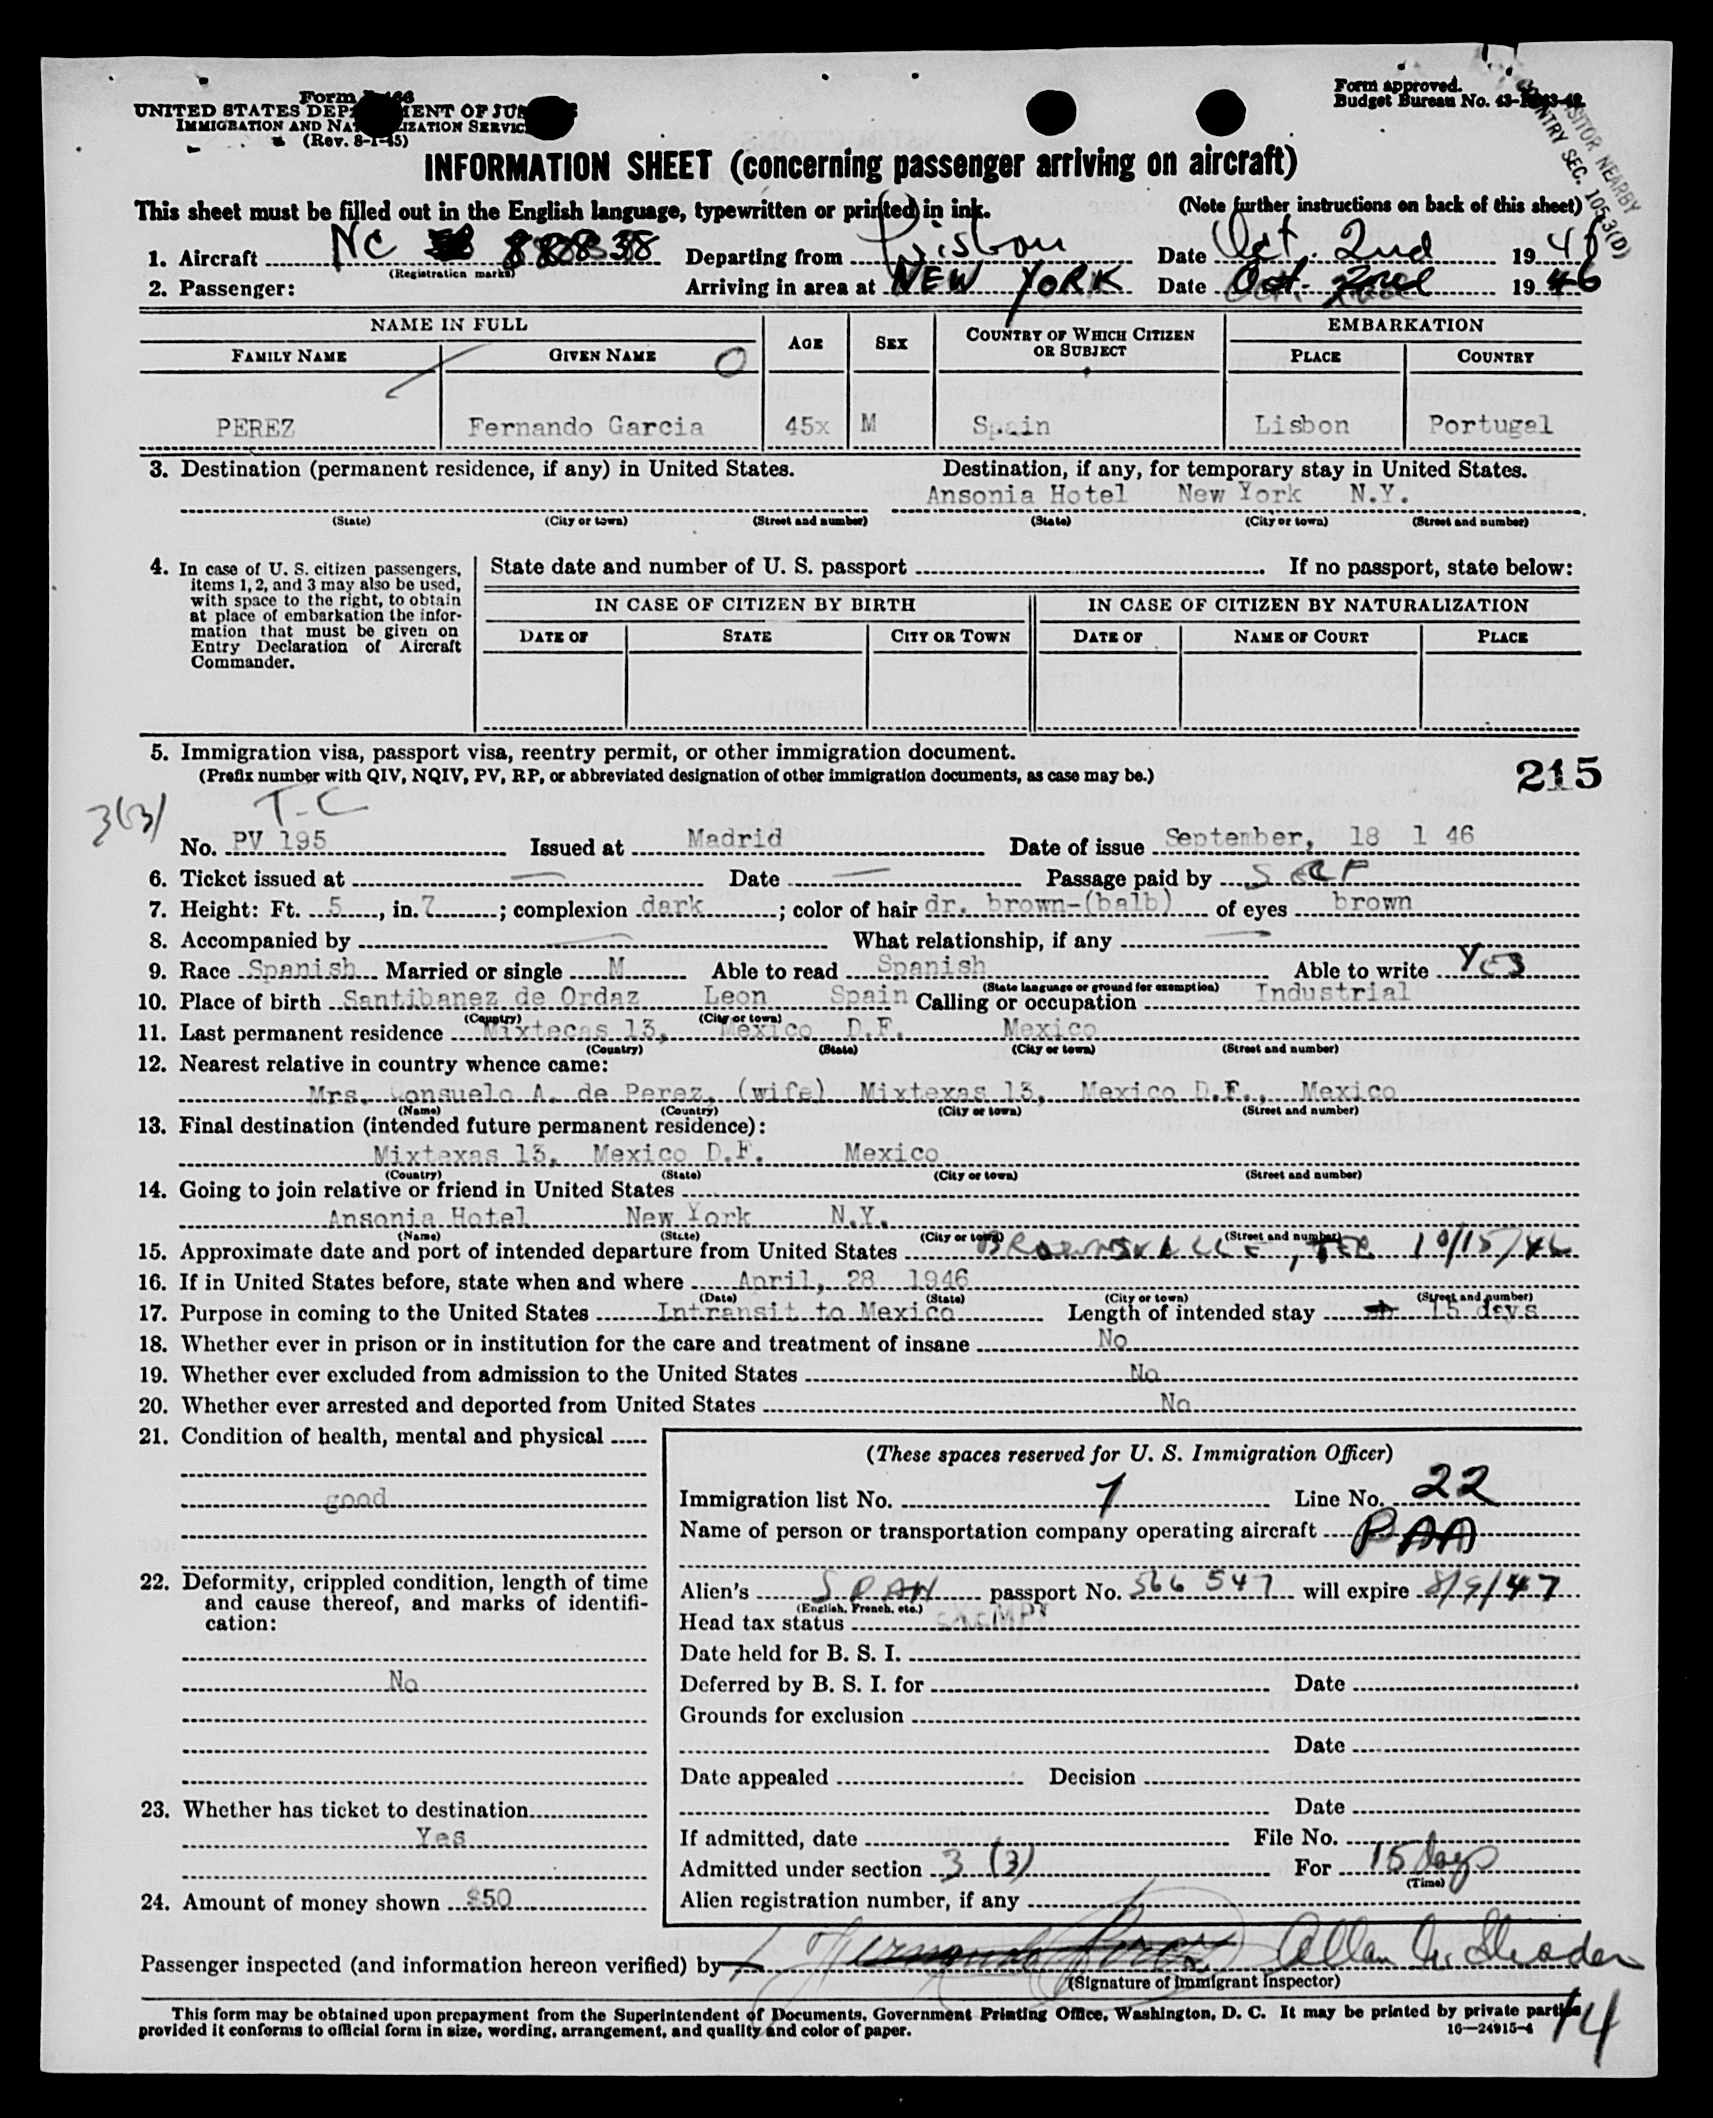 Form
UNITED STATES DEP MENT OF JUS
IMMIGRATION AND NA IZATION SERVIC
(Rev. 8-1-45)
Form approved.
Budget Bureau No. 43-
VISITOR NEARBY
NTRY SEC. 105.3(D)
INFORMATION SHEET (concerning passenger arriving on aircraft)
This sheet must be filled out in the English language, typewritten or printed in ink. (Note further instructions on back of this sheet)
1. Aircraft NC 88838 Departing from Lisbon Date Oct. 2nd 1946
(Registration marks)
2. Passenger: Arriving in area at NEW YORK Date Oct. 2nd 1946
NAME IN FULL AGE SEX COUNTRY OF WHICH CITIZEN OR SUBJECT EMBARKATION
FAMILY NAME GIVEN NAME PLACE COUNTRY
PEREZ Fernando Garcia 45x M Spain Lisbon Portugal
3. Destination (permanent residence, if any) in United States. Destination, if any, for temporary stay in United States.
Ansonia Hotel New York N.Y.
(State) (City or town) (Street and number) (State) (City or town) (Street and number)
4. In case of U. S. citizen passengers, items 1, 2, and 3 may also be used, with space to the right, to obtain at place of embarkation the information that must be given on Entry Declaration of Aircraft Commander.
State date and number of U. S. passport If no passport, state below:
IN CASE OF CITIZEN BY BIRTH IN CASE OF CITIZEN BY NATURALIZATION
DATE OF STATE CITY OR TOWN DATE OF NAME OF COURT PLACE
5. Immigration visa, passport visa, reentry permit, or other immigration document.
(Prefix number with QIV, NQIV, PV, RP, or abbreviated designation of other immigration documents, as case may be.)
215
3(3) T-C
No. PV 195 Issued at Madrid Date of issue September, 18 1 46
6. Ticket issued at — Date — Passage paid by SELF
7. Height: Ft. 5, in. 7; complexion dark; color of hair dr. brown-(balb) of eyes brown
8. Accompanied by — What relationship, if any —
9. Race Spanish Married or single M Able to read Spanish Able to write Yes
(State language or ground for exemption)
10. Place of birth Santibanez de Ordaz Leon Spain Calling or occupation Industrial
(Country) (City or town)
11. Last permanent residence Mixtecas 13, Mexico D.F. Mexico
(Country) (State) (City or town) (Street and number)
12. Nearest relative in country whence came:
Mrs. Consuelo A. de Perez, (wife) Mixtexas 13, Mexico D.F., Mexico
(Name) (Country) (City or town) (Street and number)
13. Final destination (intended future permanent residence):
Mixtexas 13, Mexico D.F. Mexico
(Country) (State) (City or town) (Street and number)
14. Going to join relative or friend in United States
Ansonia Hotel New York N.Y.
(Name) (State) (City or town) (Street and number)
15. Approximate date and port of intended departure from United States BROWNSVILLE, TEX 10/15/46
16. If in United States before, state when and where April, 28 1946
(Date) (State) (City or town) (Street and number)
17. Purpose in coming to the United States Intransit to Mexico Length of intended stay 15 days
18. Whether ever in prison or in institution for the care and treatment of insane No
19. Whether ever excluded from admission to the United States No
20. Whether ever arrested and deported from United States No
21. Condition of health, mental and physical
good
22. Deformity, crippled condition, length of time and cause thereof, and marks of identification:
No
23. Whether has ticket to destination
Yes
24. Amount of money shown $50
(These spaces reserved for U. S. Immigration Officer)
Immigration list No. 1 Line No. 22
Name of person or transportation company operating aircraft PAA
Alien's SPAN passport No. 566 547 will expire 8/9/47
(English, French, etc.)
Head tax status EXEMPT
Date held for B. S. I.
Deferred by B. S. I. for Date
Grounds for exclusion
Date
Date appealed Decision
Date
If admitted, date File No.
Admitted under section 3 (3) For 15 days
(Time)
Alien registration number, if any
Passenger inspected (and information hereon verified) by Fernando Perez Allan
(Signature of Immigrant Inspector)
This form may be obtained upon prepayment from the Superintendent of Documents, Government Printing Office, Washington, D. C. It may be printed by private parties
provided it conforms to official form in size, wording, arrangement, and quality and color of paper. 16—24915-4
14